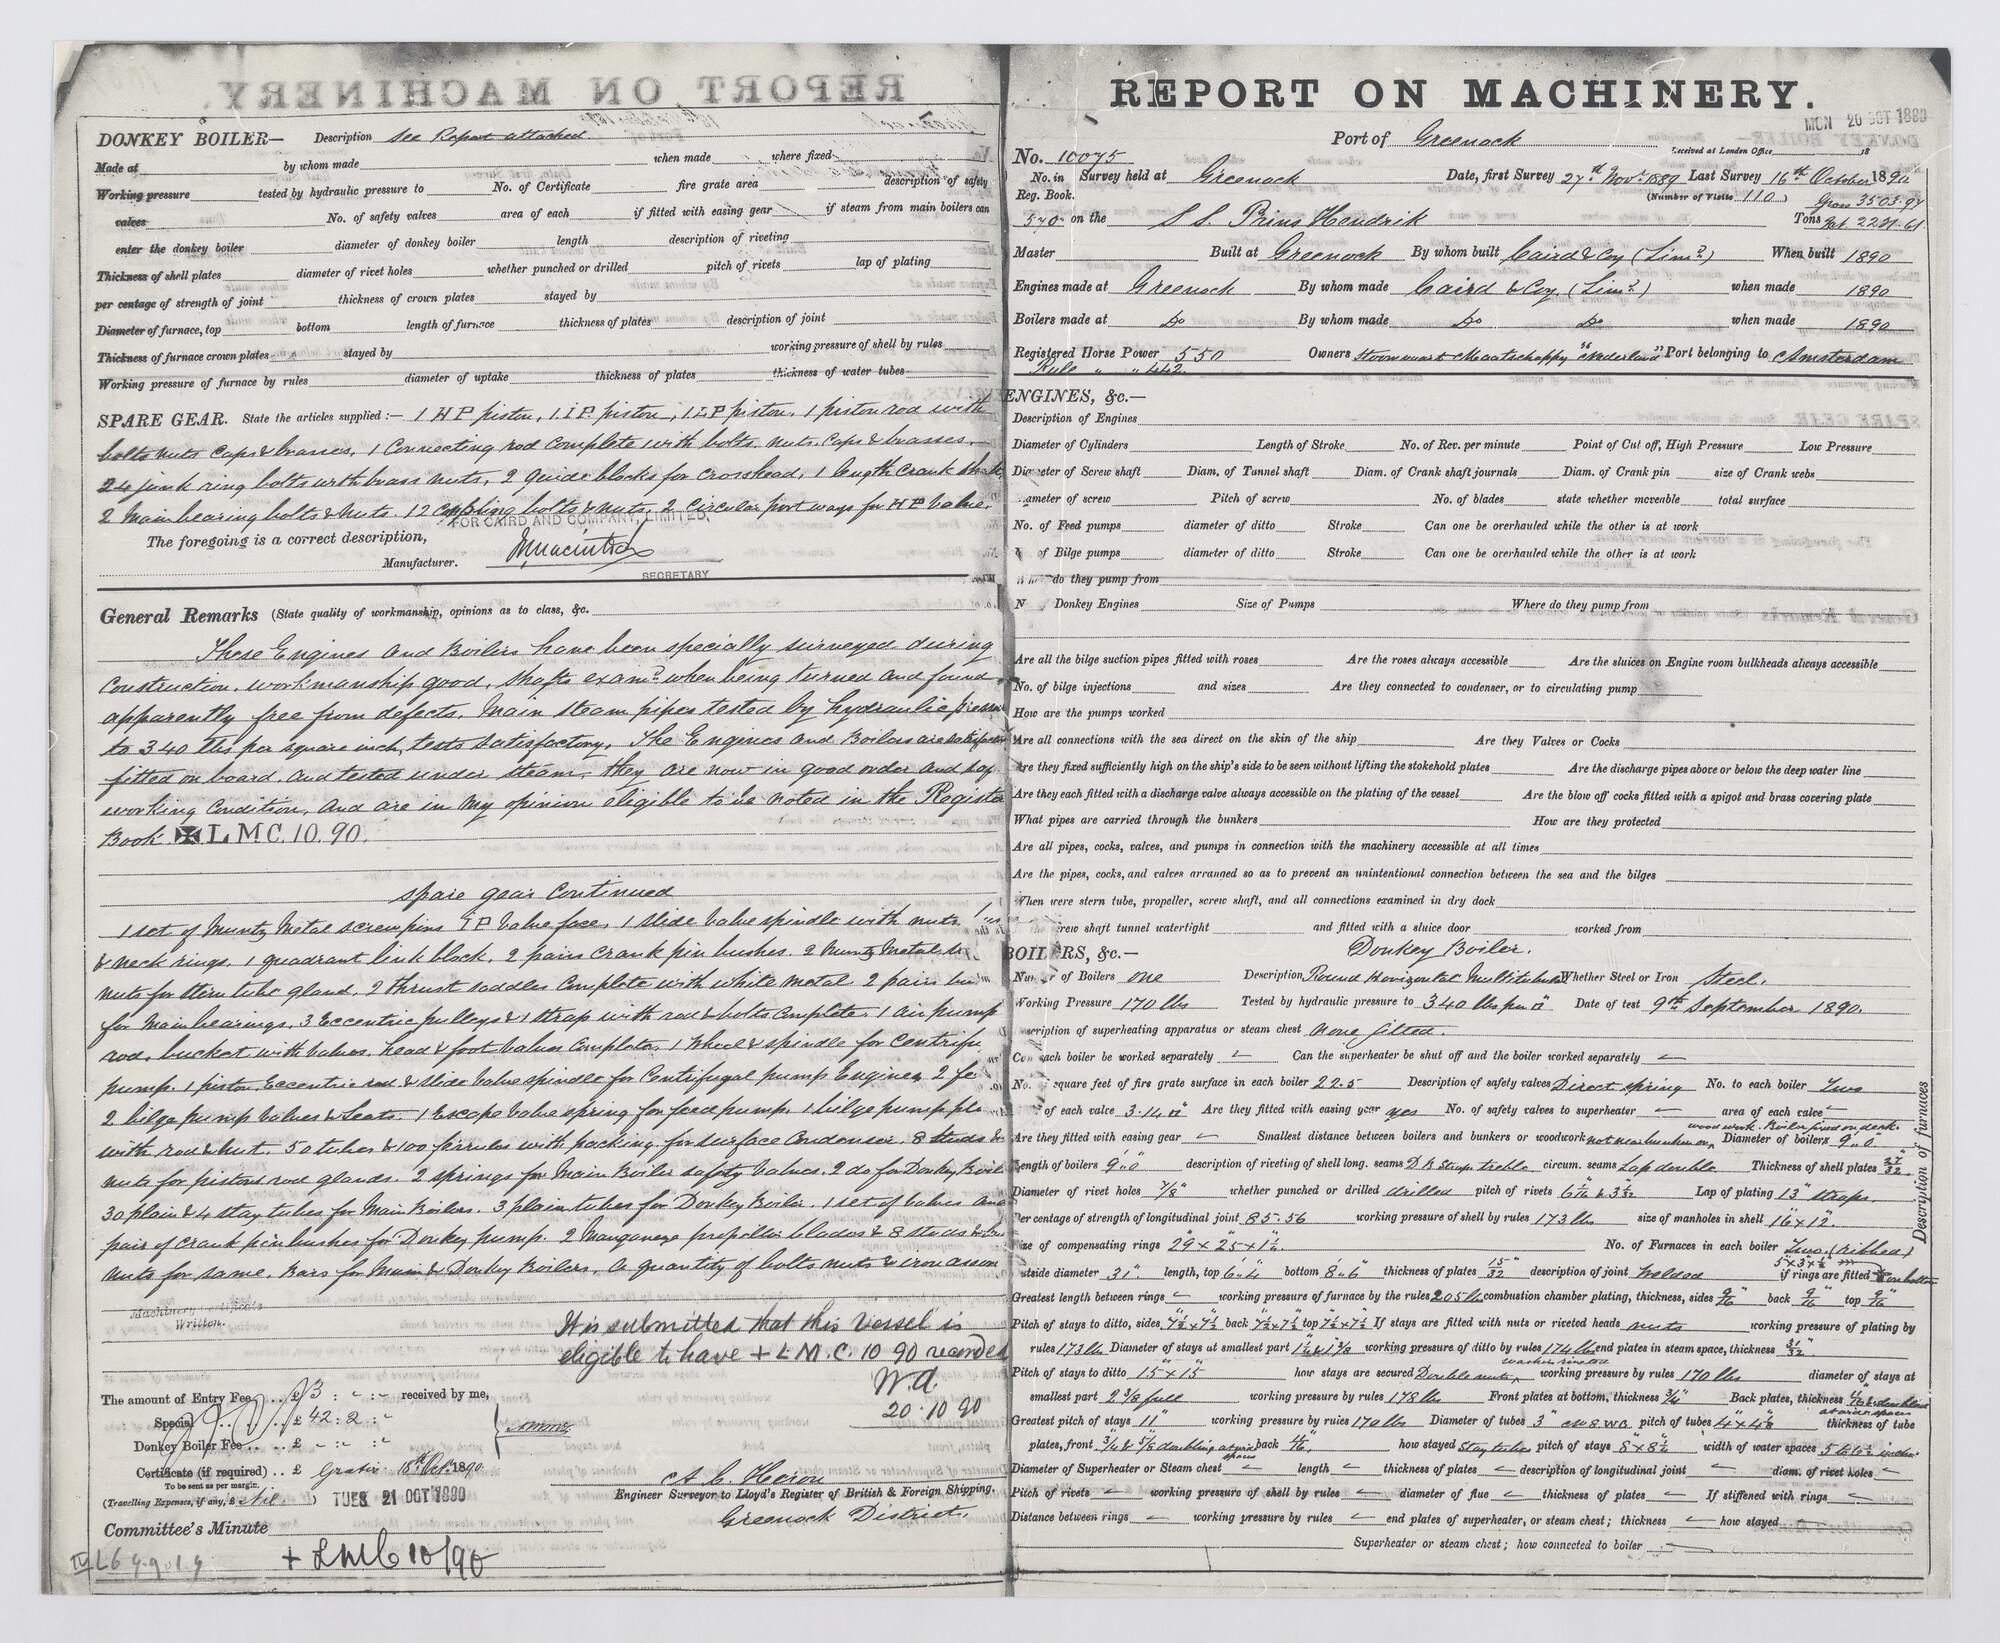 DONKEY BOILER— Description See Report attached.
Made at by whom made when made where fixed
Working pressure tested by hydraulic pressure to No. of Certificate fire grate area description of safety
valves No. of safety valves area of each if fitted with easing gear if steam from main boilers can
enter the donkey boiler diameter of donkey boiler length description of riveting
Thickness of shell plates diameter of rivet holes whether punched or drilled pitch of rivets lap of plating
per centage of strength of joint thickness of crown plates stayed by
Diameter of furnace, top bottom length of furnace thickness of plates description of joint
Thickness of furnace crown plates stayed by working pressure of shell by rules
Working pressure of furnace by rules diameter of uptake thickness of plates thickness of water tubes
SPARE GEAR. State the articles supplied :— 1 H P piston, 1 I P. piston, 1 L P piston, 1 piston rod with
bolts nuts caps & brasses, 1 Connecting rod complete with bolts. nuts. caps & brasses.
24 junk ring bolts with brass nuts, 2 guide blocks for crosshead, 1 length crank shaft
2 Main bearing bolts & nuts. 12 coupling bolts & nuts, 2 circular port ways for H P Valve.
FOR CAIRD AND COMPANY, LIMITED,
The foregoing is a correct description,
Manufacturer.
SECRETARY
General Remarks (State quality of workmanship, opinions as to class, &c.
These Engines and Boilers have been specially surveyed during
construction, workmanship good, shafts examd when being turned and found
apparently free from defects. Main steam pipes tested by hydraulic pressure
to 340 lbs per square inch, tests satisfactory, The Engines and Boilers are
fitted on board and tested under steam, they are now in good order and
working condition, and are in my opinion eligible to be noted in the Register
Book. ✠ L M C. 10. 90.
Spare gear Continued
1 set of Muntz Metal screw pins I P Valve face, 1 slide valve spindle with nuts
& neck rings. 1 quadrant link block. 2 pairs crank pin bushes. 2 Muntz Metal
nuts for stern tube gland. 2 thrust saddles complete with white metal 2 pairs
for Main bearings. 3 Eccentric pulleys & 1 strap with rod & bolts complete. 1 air pump
rod. bucket with valves. head & foot valves complete 1 wheel & spindle for
pump. 1 piston Eccentric rod & slide valve spindle for Centrifugal pump Engines 2
2 bilge pump valves & seats. 1 Escape valve spring for feed pump. 1 bilge pump
with rod & nut. 50 tubes & 100 ferrules with packing for surface Condenser. 8 studs &
nuts for pistons rod glands. 2 springs for Main Boiler safety valves. 2 do for Donkey
30 plain & 4 stay tubes for Main Boilers. 3 plain tubes for Donkey Boiler. 1 set of valves and
pair of crank pin bushes for Donkey pump. 2 Manganese propeller blades & 8 studs &
nuts for same. Bars for Main & Donkey Boilers, a quantity of bolts nuts & iron
Machinery Certificate
Written.
It is submitted that this Vessel is
eligible to have + L. M. C. 10 90 recorded
W.A.
20. 10 90
The amount of Entry Fee .. £ 3 : - : - received by me,
Special .. .. £ 42 : 2 : -
Donkey Boiler Fee .. .. £ - : - : -
Certificate (if required) .. £ Gratis 18th Oct. 1890
To be sent as per margin.
(Travelling Expenses, if any, £ Nil. ) TUES 21 OCT 1890
Engineer Surveyor to Lloyd's Register of British & Foreign Shipping.
Greenock District.
Committee's Minute
+ LMC 10/90
REPORT ON MACHINERY.
MON 20 OCT 1890
Port of Greenock
Received at London Office 18
No. 10075
No. in Survey held at Greenock Date, first Survey 27th Novr. 1889 Last Survey 16th October 1890
Reg. Book. (Number of Visits 110 ) Gross 3503.97
570 on the S S. Prins Hendrik Tons
Master Built at Greenock By whom built Caird & Coy (Limd) When built 1890
Engines made at Greenock By whom made Caird & Coy. (Limd) when made 1890
Boilers made at Do By whom made Do Do when made 1890
Registered Horse Power 550 Owners Stoomvaart Maatschappy "Nederland" Port belonging to Amsterdam
Rule " " 442
ENGINES, &c.—
Description of Engines
Diameter of Cylinders Length of Stroke No. of Rev. per minute Point of Cut off, High Pressure Low Pressure
Diameter of Screw shaft Diam. of Tunnel shaft Diam. of Crank shaft journals Diam. of Crank pin size of Crank webs
ameter of screw Pitch of screw No. of blades state whether moveable total surface
No. of Feed pumps diameter of ditto Stroke Can one be overhauled while the other is at work
of Bilge pumps diameter of ditto Stroke Can one be overhauled while the other is at work
do they pump from
N Donkey Engines Size of Pumps Where do they pump from
Are all the bilge suction pipes fitted with roses Are the roses always accessible Are the sluices on Engine room bulkheads always accessible
No. of bilge injections and sizes Are they connected to condenser, or to circulating pump
How are the pumps worked
Are all connections with the sea direct on the skin of the ship Are they Valves or Cocks
Are they fixed sufficiently high on the ship's side to be seen without lifting the stokehold plates Are the discharge pipes above or below the deep water line
Are they each fitted with a discharge valve always accessible on the plating of the vessel Are the blow off cocks fitted with a spigot and brass covering plate
What pipes are carried through the bunkers How are they protected
Are all pipes, cocks, valves, and pumps in connection with the machinery accessible at all times
Are the pipes, cocks, and valves arranged so as to prevent an unintentional connection between the sea and the bilges
When were stern tube, propeller, screw shaft, and all connections examined in dry dock
crew shaft tunnel watertight and fitted with a sluice door worked from
BOILERS, &c.— Donkey Boiler.
Number of Boilers one Description Round Horizontal Multitubular Whether Steel or Iron Steel.
Working Pressure 170 lbs Tested by hydraulic pressure to 340 lbs per □" Date of test 9th September 1890.
scription of superheating apparatus or steam chest none fitted.
Can each boiler be worked separately Can the superheater be shut off and the boiler worked separately
No. of square feet of fire grate surface in each boiler 22.5 Description of safety valves Direct spring No. to each boiler Two
of each valve 3.14 □" Are they fitted with easing gear yes No. of safety valves to superheater area of each valve
Are they fitted with easing gear Smallest distance between boilers and bunkers or woodwork not near bunkers or woodwork. Boiler fixed on deck. Diameter of boilers 9'.0"
Length of boilers 9'.0" description of riveting of shell long. seams D B Straps treble circum. seams Lap double Thickness of shell plates 27/32"
Diameter of rivet holes 7/8" whether punched or drilled drilled pitch of rivets Lap of plating 13" straps.
Per centage of strength of longitudinal joint 85.56 working pressure of shell by rules 173 lbs size of manholes in shell 16" x 12".
Size of compensating rings No. of Furnaces in each boiler Two. (Ribbed)
outside diameter 31". length, top 6'.4" bottom 8'.6" thickness of plates 15/32" description of joint Welded if rings are fitted
Greatest length between rings working pressure of furnace by the rules 205 lbs combustion chamber plating, thickness, sides 9/16" back 9/16" top 9/16"
Pitch of stays to ditto, sides 7½" x 7½" back 7½" x 7½" top 7½" x 7½" If stays are fitted with nuts or riveted heads nuts working pressure of plating by
rules 173 lbs Diameter of stays at smallest part working pressure of ditto by rules 174 lbs end plates in steam space, thickness 31/32"
Pitch of stays to ditto 15" x 15" how stays are secured Double nuts & washers riveted working pressure by rules 170 lbs diameter of stays at
smallest part 2 3/8 full working pressure by rules 178 lbs Front plates at bottom, thickness 3/4" Back plates, thickness
Greatest pitch of stays 11" working pressure by rules 170 lbs Diameter of tubes 3" pitch of tubes thickness of tube
plates, front back how stayed Stay tubes pitch of stays 8" x 8½" width of water spaces
Diameter of Superheater or Steam chest length thickness of plates description of longitudinal joint diam. of rivet holes
Pitch of rivets working pressure of shell by rules diameter of flue thickness of plates If stiffened with rings
Distance between rings working pressure by rules end plates of superheater, or steam chest; thickness how stayed
Superheater or steam chest; how connected to boiler
Description of furnaces